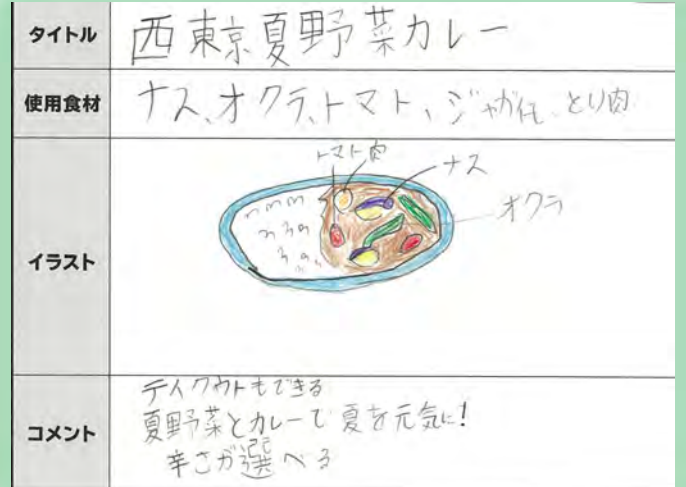 タイトル
西東京夏野菜カレー
使用食材
ナス、オクラ、トマト、ジャガイモ、とり肉
イラスト
トマト 肉
ナス
オクラ
コメント
テイクアウトもできる
夏野菜とカレーで夏を元気に!
辛さが選べる